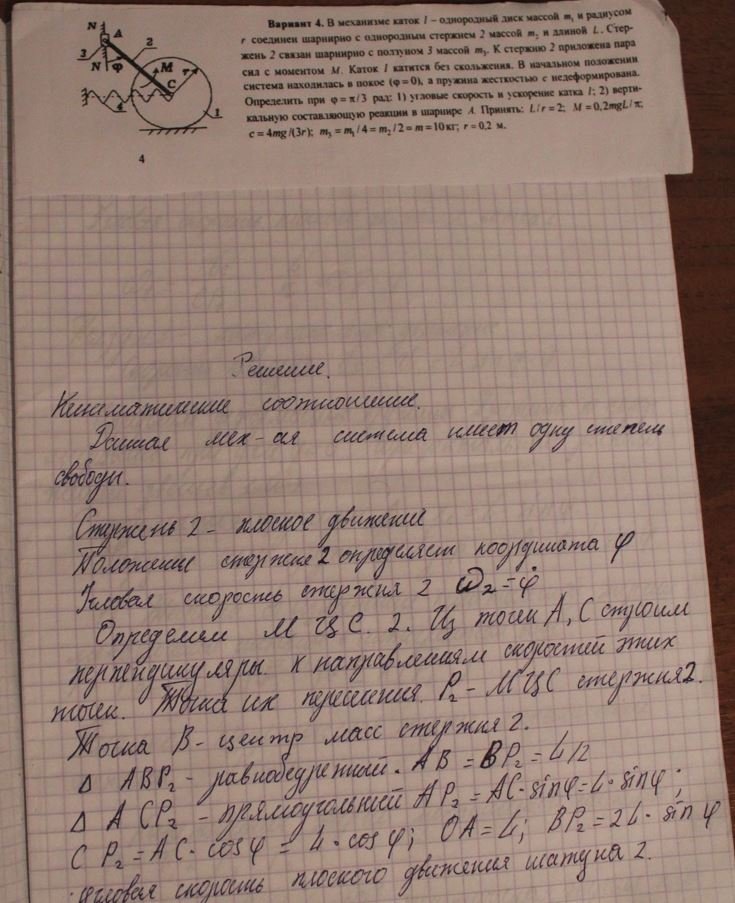 Вариант 4. В механизме каток 1 – однородный диск массой m₁ и радиусом
r соединен шарнирно с однородным стержнем 2 массой m₂ и длиной L. Стер-
жень 2 связан шарнирно с ползуном 3 массой m₃. К стержню 2 приложена пара
сил с моментом M. Каток 1 катится без скольжения. В начальном положении
система находилась в покое (φ=0), а пружина жесткостью c недеформирована.
Определить при φ=π/3 рад: 1) угловые скорость и ускорение катка 1; 2) верти-
кальную составляющую реакции в шарнире A. Принять: L/r=2; M=0,2mgL/π;
c=4mg/(3r); m₃=m₁/4=m₂/2=m=10кг; r=0,2 м.
N
A
3
2
N
φ
M
r
C
4
1
4
Решение.
Кинематические соотношение.
Данная мех-ая система имеет одну степень
свободы.
Стержень 2 - плоское движение
Положение стержня 2 определяет координата φ
Угловая скорость стержня 2 ω₂=φ̇
Определяем МЦС. 2. Из точек A, C строим
перпендикуляры к направлениям скоростей этих
точек. Точка их пересечения P₂ - МЦС стержня 2.
Точка B - центр масс стержня 2.
Δ ABP₂ - равнобедренный. AB = BP₂ = L/2
Δ ACP₂ - прямоугольний AP₂ = AC·sinφ = L·sinφ;
CP₂ = AC·cosφ = L·cosφ; OA = L; BP₂ = 2L·sinφ
Угловая скорость плоского движения шатуна 2.